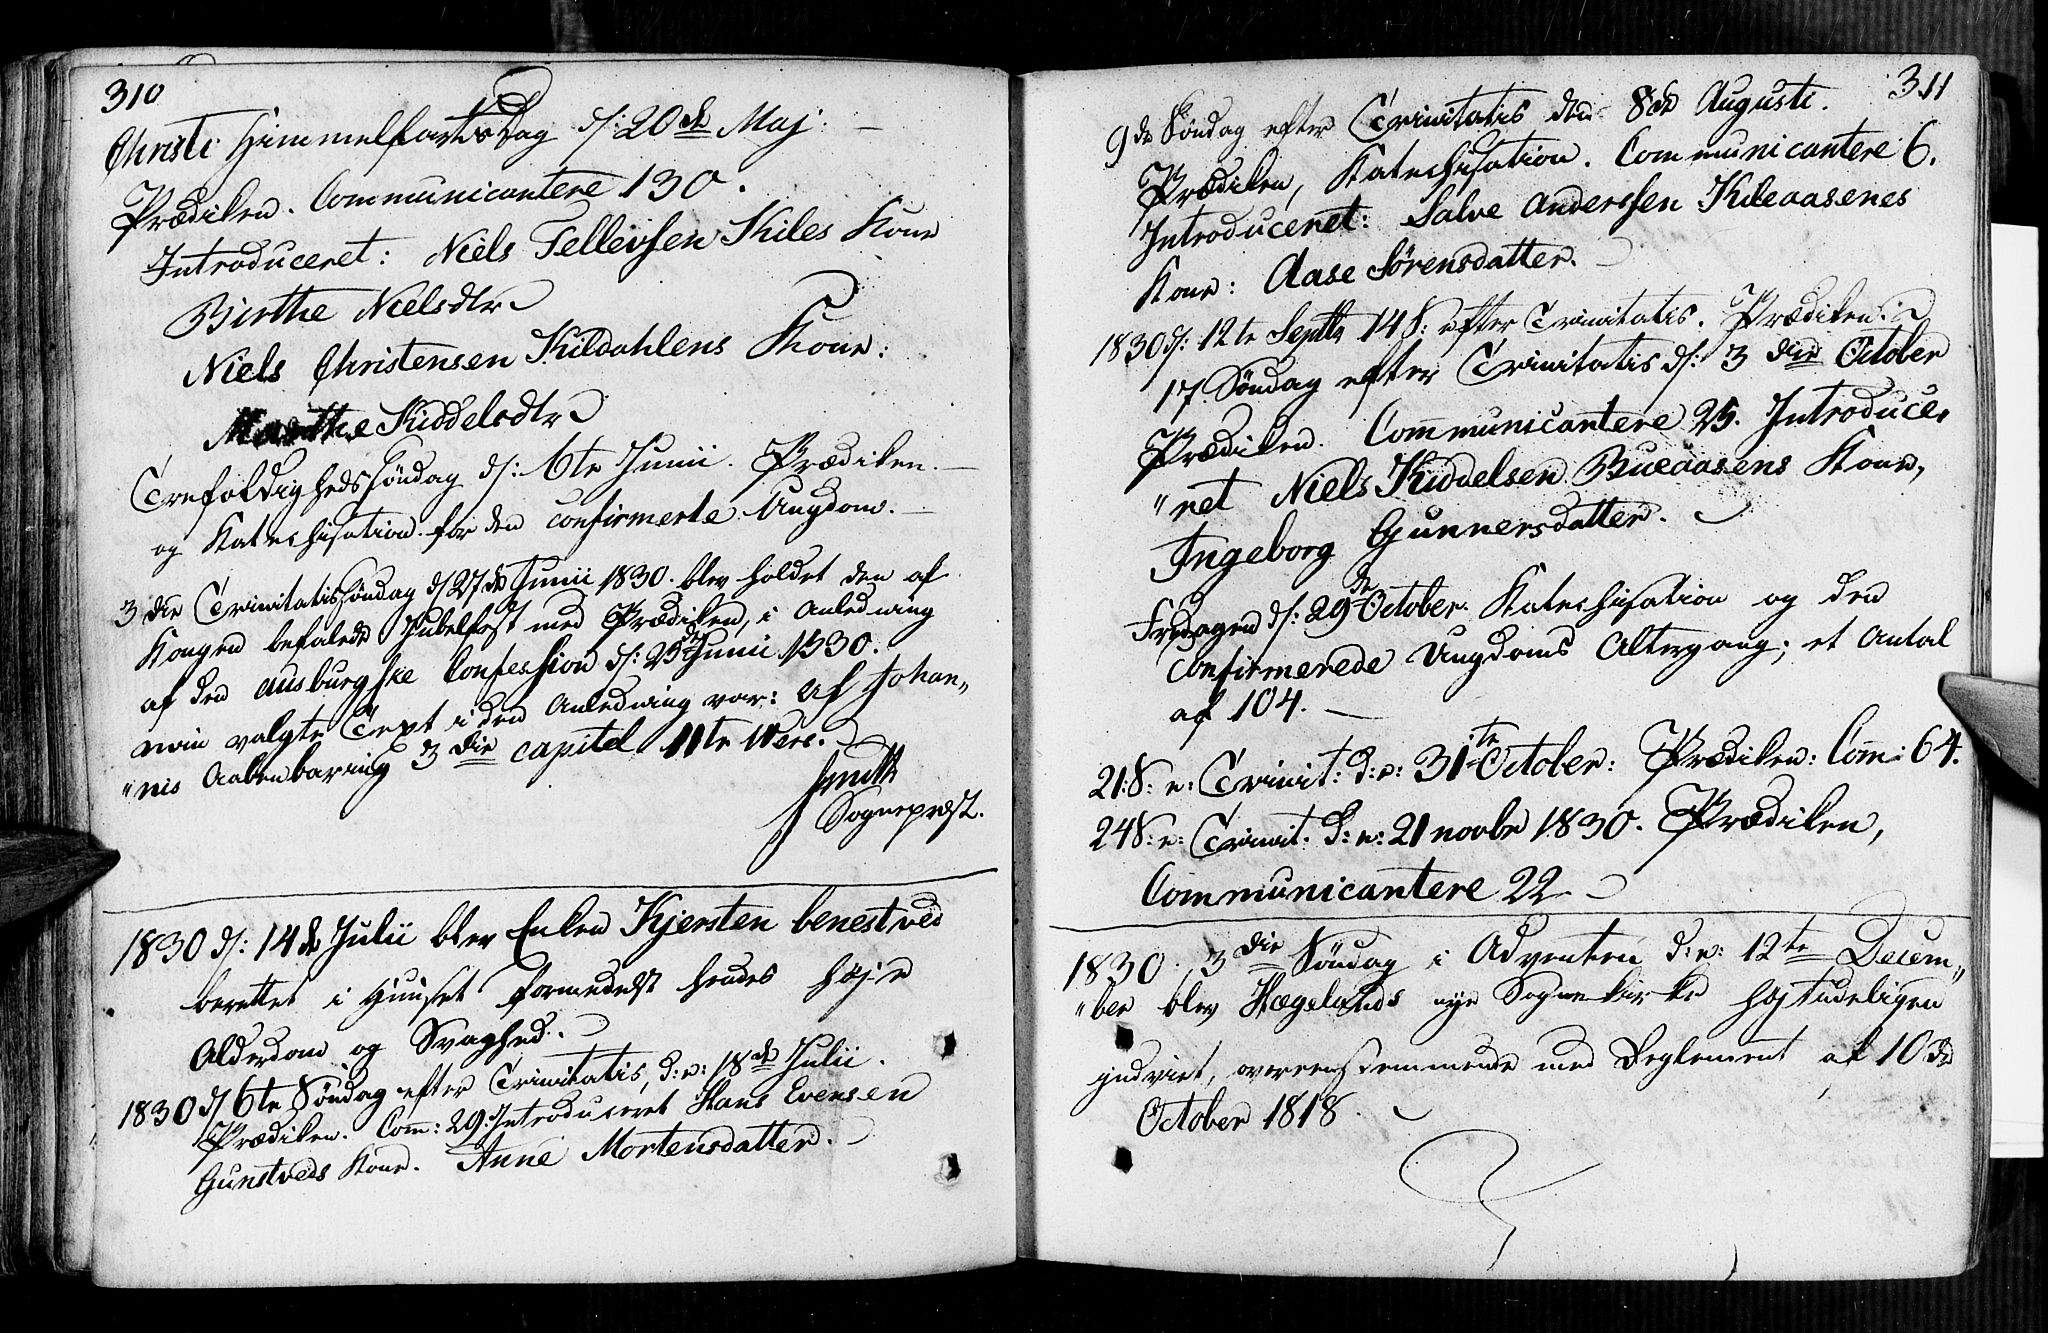 310
Christi Himmelfarts Dag d: 20de Maj.
Prædiken. Communicantere 130.
Introduceret: Niels Tellevsen Kiles Kone
Birthe Nielsdtr
Niels Christensen Kildahlens Kone:
Marthe Kiddelsdtr
Trefoldighedssöndag d: 6te Junii. Prædiken.
og Katechisation for den confirmerte Ungdom.
3die Trinitatissöndag d 27de Junii 1830. blev holdet den af
Kongen befalede Jubelfest med Prædiken, i Anledning
af den ausburgske Confession d: 25de Junii 1530.
min valgte Text i den Anledning var: af Johan„
„nis Aabenbaring 3die capitel 11te Vers.
Smith
Sognepræst.
1830 d: 14de Julii blev Enken Kjersten benestved
berettet i Huuset formedelst hendes höje
Alderdom og Svaghed.
1830 d 6te Söndag efter Trinitatis, d: e: 18de Julii.
Prædiken. Com: 29. Introduceret Hans Evensen
Gunstveds Kone. Anne Mortensdatter.
311
9de Söndag efter Trinitatis den 8de Augusti.
Prædiken, Katechisation. Communicantere 6.
Introduceret: Salve Anderssen Kileaasenes
Kone: Aase Sörensdatter.
1830 d: 12te Septbr 14 S: efter Trinitatis. Prædiken.
17 Söndag efter Trinitatis d: 3die October
Prædiken. Communicantere 25. Introduce„
„ret Niels Kiddelsen Bueaasens Kone,
Ingeborg Gunnersdatter.
Fredagen d: 29de October. Katechisation og den
confirmerede Ungdoms Altergang; et Antal
af 104.
21: S: e: Trinit: d: e: 31te October: Prædiken: Com: 64.
24 S: e: Trinit: d: e: 21 novbr 1830. Prædiken,
Communicantere 22
1830. 3die Söndag i Adventen d: e: 12te Decem„
„ber blev Hægelands nye Sognekirke höjtideligen
indviet, overensstemmende med Reglement af 10de
October 1818.